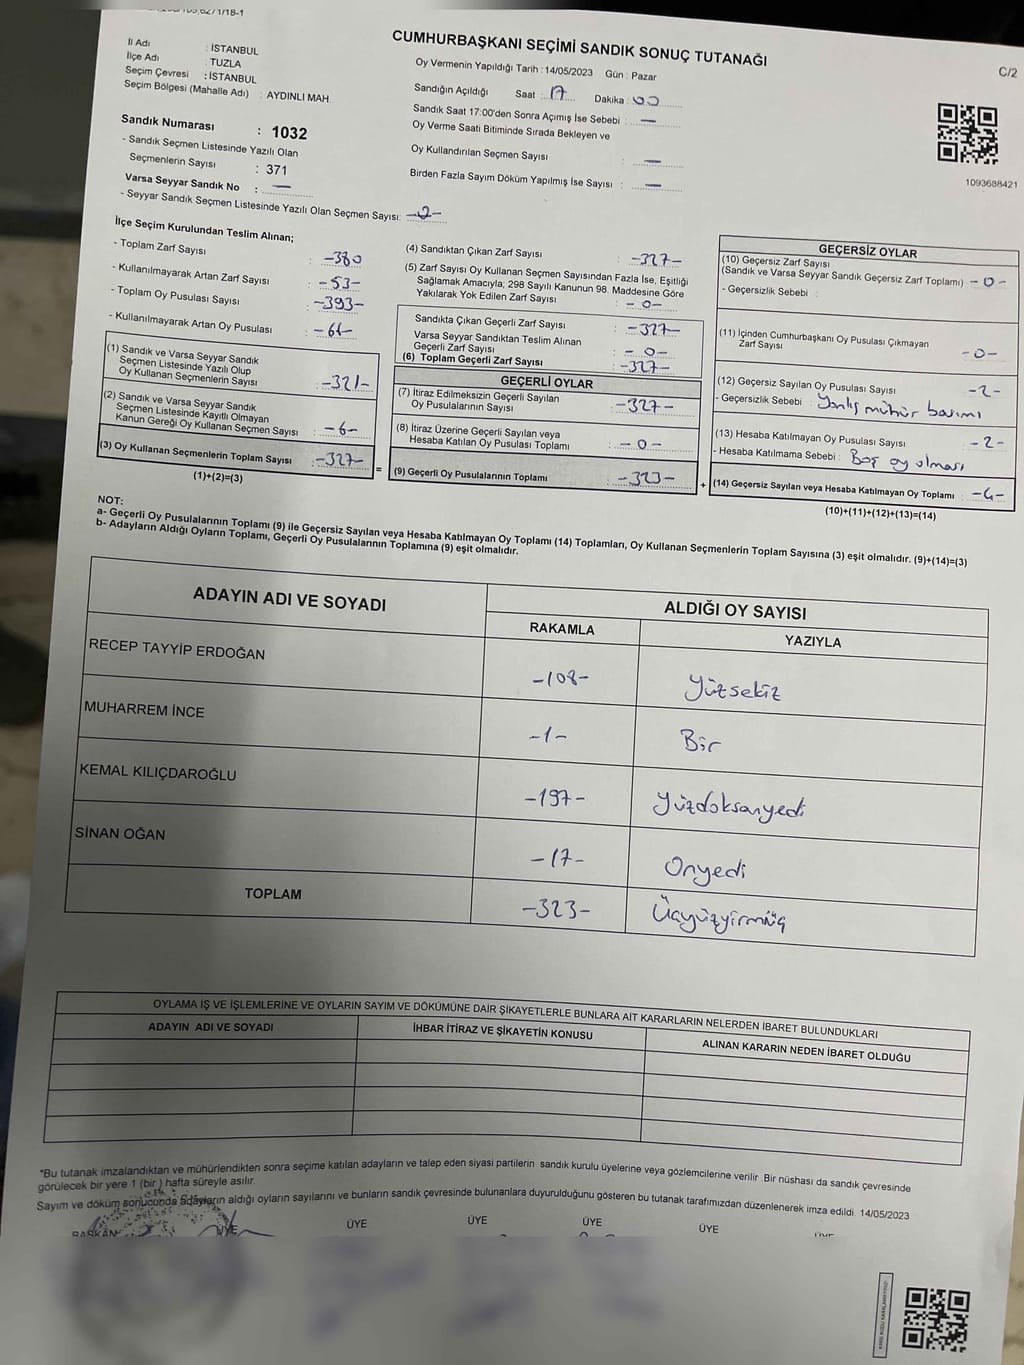 CUMHURBAŞKANI SEÇİMİ SANDIK SONUÇ TUTANAĞI
C/2
İl Adı : İSTANBUL
İlçe Adı : TUZLA
Seçim Çevresi : İSTANBUL
Seçim Bölgesi (Mahalle Adı) : AYDINLI MAH.
Sandık Numarası : 1032
- Sandık Seçmen Listesinde Yazılı Olan
Seçmenlerin Sayısı : 371
Varsa Seyyar Sandık No : —
- Seyyar Sandık Seçmen Listesinde Yazılı Olan Seçmen Sayısı: -0-
Oy Vermenin Yapıldığı Tarih : 14/05/2023 Gün : Pazar
Sandığın Açıldığı Saat : 17 Dakika : 00
Sandık Saat 17:00'den Sonra Açımış İse Sebebi : —
Oy Verme Saati Bitiminde Sırada Bekleyen ve
Oy Kullandırılan Seçmen Sayısı : —
Birden Fazla Sayım Döküm Yapılmış İse Sayısı : —
1093688421
İlçe Seçim Kurulundan Teslim Alınan;
- Toplam Zarf Sayısı : -380-
- Kullanılmayarak Artan Zarf Sayısı : -53-
- Toplam Oy Pusulası Sayısı : -393-
- Kullanılmayarak Artan Oy Pusulası : -66-
(1) Sandık ve Varsa Seyyar Sandık
Seçmen Listesinde Yazılı Olup
Oy Kullanan Seçmenlerin Sayısı : -321-
(2) Sandık ve Varsa Seyyar Sandık
Seçmen Listesinde Kayıtlı Olmayan
Kanun Gereği Oy Kullanan Seçmen Sayısı : -6-
(3) Oy Kullanan Seçmenlerin Toplam Sayısı : -327-
(1)+(2)=(3)
(4) Sandıktan Çıkan Zarf Sayısı : -327-
(5) Zarf Sayısı Oy Kullanan Seçmen Sayısından Fazla İse, Eşitliği
Sağlamak Amacıyla; 298 Sayılı Kanunun 98. Maddesine Göre
Yakılarak Yok Edilen Zarf Sayısı : -0-
Sandıkta Çıkan Geçerli Zarf Sayısı : -327-
Varsa Seyyar Sandıktan Teslim Alınan
Geçerli Zarf Sayısı : -0-
(6) Toplam Geçerli Zarf Sayısı : -327-
GEÇERLİ OYLAR
(7) İtiraz Edilmeksizin Geçerli Sayılan
Oy Pusulalarının Sayısı : -327-
(8) İtiraz Üzerine Geçerli Sayılan veya
Hesaba Katılan Oy Pusulası Toplamı : -0-
= (9) Geçerli Oy Pusulalarının Toplamı : -323- +
GEÇERSİZ OYLAR
(10) Geçersiz Zarf Sayısı
(Sandık ve Varsa Seyyar Sandık Geçersiz Zarf Toplamı) -0-
- Geçersizlik Sebebi :
(11) İçinden Cumhurbaşkanı Oy Pusulası Çıkmayan
Zarf Sayısı -0-
(12) Geçersiz Sayılan Oy Pusulası Sayısı -2-
- Geçersizlik Sebebi : Yanlış mühür basımı
(13) Hesaba Katılmayan Oy Pusulası Sayısı -2-
- Hesaba Katılmama Sebebi : Boş oy olması
(14) Geçersiz Sayılan veya Hesaba Katılmayan Oy Toplamı -4-
(10)+(11)+(12)+(13)=(14)
NOT:
a- Geçerli Oy Pusulalarının Toplamı (9) ile Geçersiz Sayılan veya Hesaba Katılmayan Oy Toplamı (14) Toplamları, Oy Kullanan Seçmenlerin Toplam Sayısına (3) eşit olmalıdır. (9)+(14)=(3)
b- Adayların Aldığı Oyların Toplamı, Geçerli Oy Pusulalarının Toplamına (9) eşit olmalıdır.
ADAYIN ADI VE SOYADI
ALDIĞI OY SAYISI
RAKAMLA YAZIYLA
RECEP TAYYİP ERDOĞAN -108- Yüzsekiz
MUHARREM İNCE -1- Bir
KEMAL KILIÇDAROĞLU -197- Yüzdoksanyedi
SİNAN OĞAN -17- Onyedi
TOPLAM -323- Üçyüzyirmiüç
OYLAMA İŞ VE İŞLEMLERİNE VE OYLARIN SAYIM VE DÖKÜMÜNE DAİR ŞİKAYETLERLE BUNLARA AİT KARARLARIN NELERDEN İBARET BULUNDUKLARI
ADAYIN ADI VE SOYADI İHBAR İTİRAZ VE ŞİKAYETİN KONUSU ALINAN KARARIN NEDEN İBARET OLDUĞU
*Bu tutanak imzalandıktan ve mühürlendikten sonra seçime katılan adayların ve talep eden siyasi partilerin sandık kurulu üyelerine veya gözlemcilerine verilir. Bir nüshası da sandık çevresinde
görülecek bir yere 1 (bir) hafta süreyle asılır.
Sayım ve döküm sonucunda adayların aldığı oyların sayılarını ve bunların sandık çevresinde bulunanlara duyurulduğunu gösteren bu tutanak tarafımızdan düzenlenerek imza edildi 14/05/2023
BAŞKAN ÜYE ÜYE ÜYE ÜYE ÜYE ÜYE